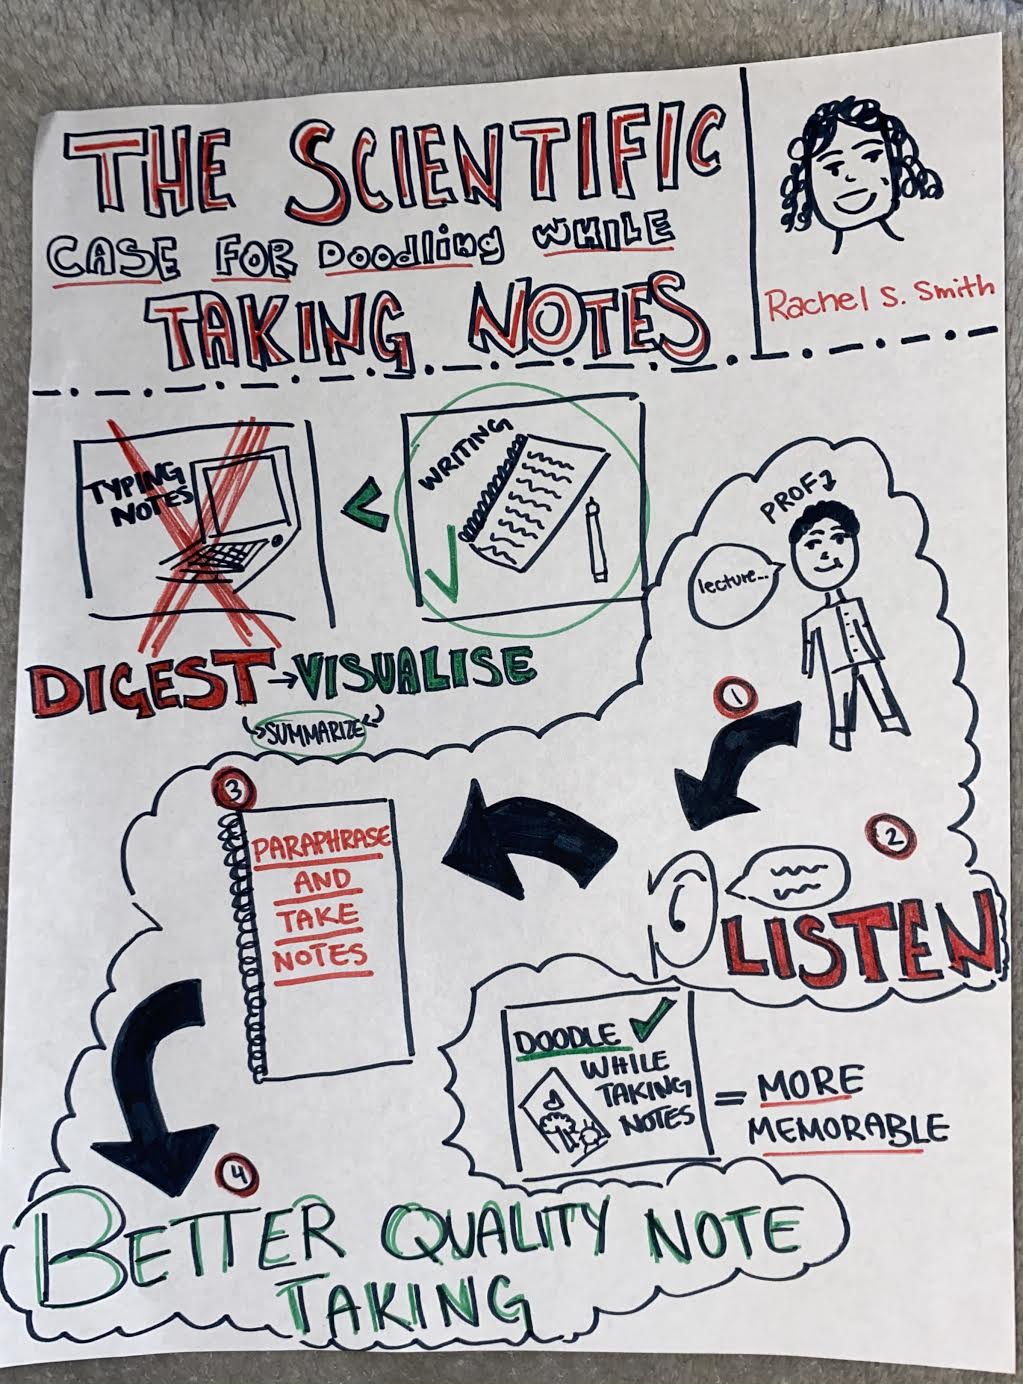 THE SCIENTIFIC
CASE FOR Doodling WHILE
TAKING NOTES
Rachel S. Smith
TYPING
NOTES
<
WRITING
DIGEST → VISUALISE
SUMMARIZE
PROF
lecture...
1
2
LISTEN
3
PARAPHRASE
AND
TAKE
NOTES
DOODLE
WHILE
TAKING
NOTES
= MORE
MEMORABLE
4
BETTER QUALITY NOTE
TAKING